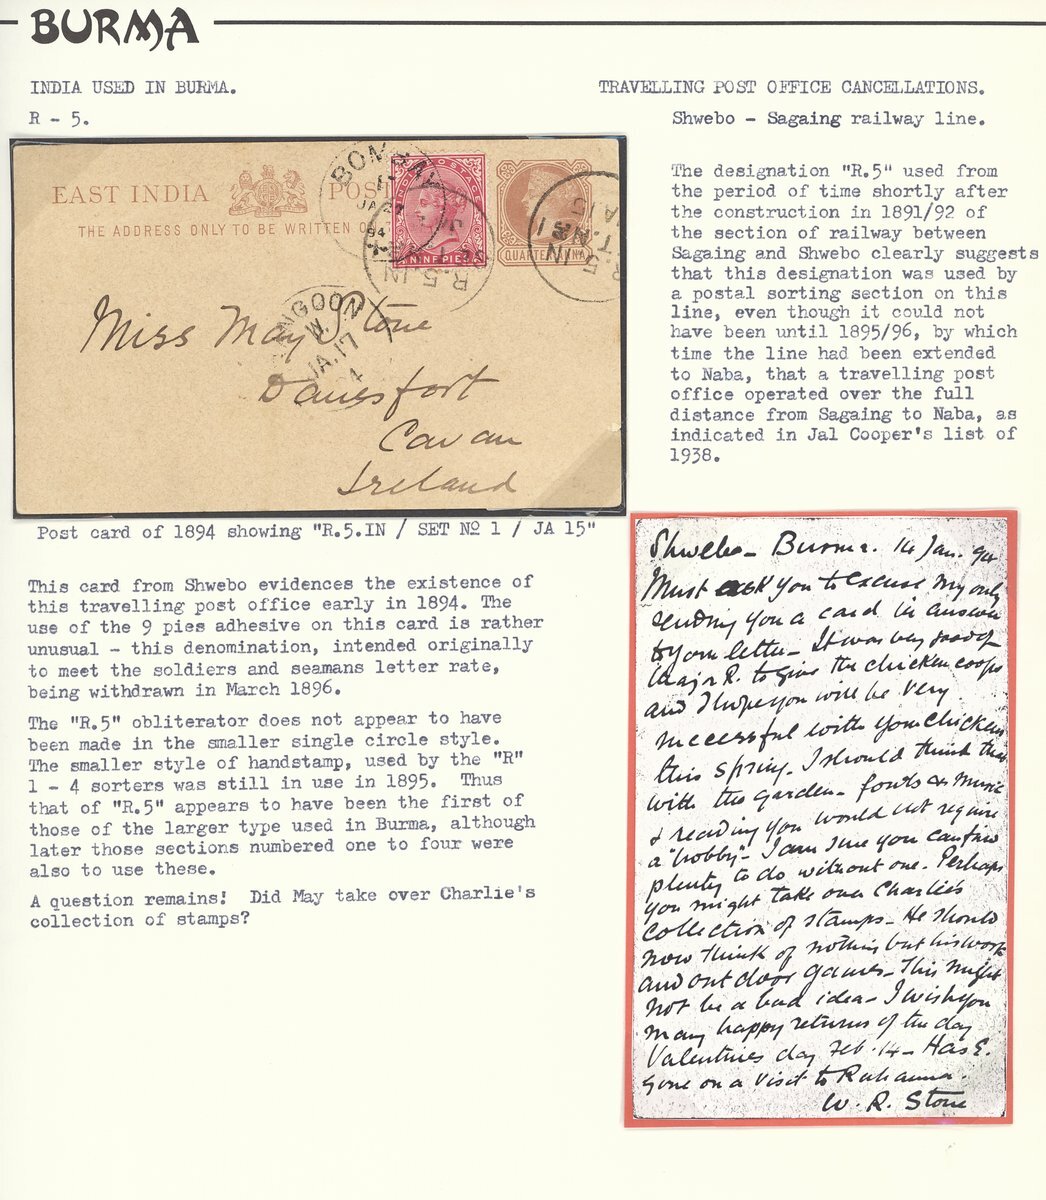 BURMA
INDIA USED IN BURMA.
TRAVELLING POST OFFICE CANCELLATIONS.
R - 5.
Shwebo - Sagaing railway line.
EAST INDIA
POST
THE ADDRESS ONLY TO BE WRITTEN
BOMBAY
JA
94
NINE PIES
R.5.IN
QUARTER ANNA
R.5.IN
RANGOON
W.
JA.17
Miss May Stone
Danesfort
Cavan
Ireland
The designation "R.5" used from
the period of time shortly after
the construction in 1891/92 of
the section of railway between
Sagaing and Shwebo clearly suggests
that this designation was used by
a postal sorting section on this
line, even though it could not
have been until 1895/96, by which
time the line had been extended
to Naba, that a travelling post
office operated over the full
distance from Sagaing to Naba, as
indicated in Jal Cooper's list of
1938.
Post card of 1894 showing "R.5.IN / SET Nº 1 / JA 15"
This card from Shwebo evidences the existence of
this travelling post office early in 1894. The
use of the 9 pies adhesive on this card is rather
unusual - this denomination, intended originally
to meet the soldiers and seamans letter rate,
being withdrawn in March 1896.
The "R.5" obliterator does not appear to have
been made in the smaller single circle style.
The smaller style of handstamp, used by the "R"
1 - 4 sorters was still in use in 1895. Thus
that of "R.5" appears to have been the first of
those of the larger type used in Burma, although
later those sections numbered one to four were
also to use these.
A question remains! Did May take over Charlie's
collection of stamps?
Shwebo - Burma. 14 Jan. 94
Must ask you to excuse my only
sending you a card in answer
to your letter - It was very good of
Major R. to give the chicken coops
and I hope you will be very
successful with your chickens
this spring. I should think that
with the garden - fowls or music
& reading you would not require
a "hobby" - I am sure you can find
plenty to do without one. Perhaps
you might take over Charlie's
collection of stamps - He should
now think of nothing but his work
and out door games - This might
not be a bad idea - I wish you
many happy returns of the day
Valentines day Feb. 14 - Has E.
gone on a visit to
W. R. Stone